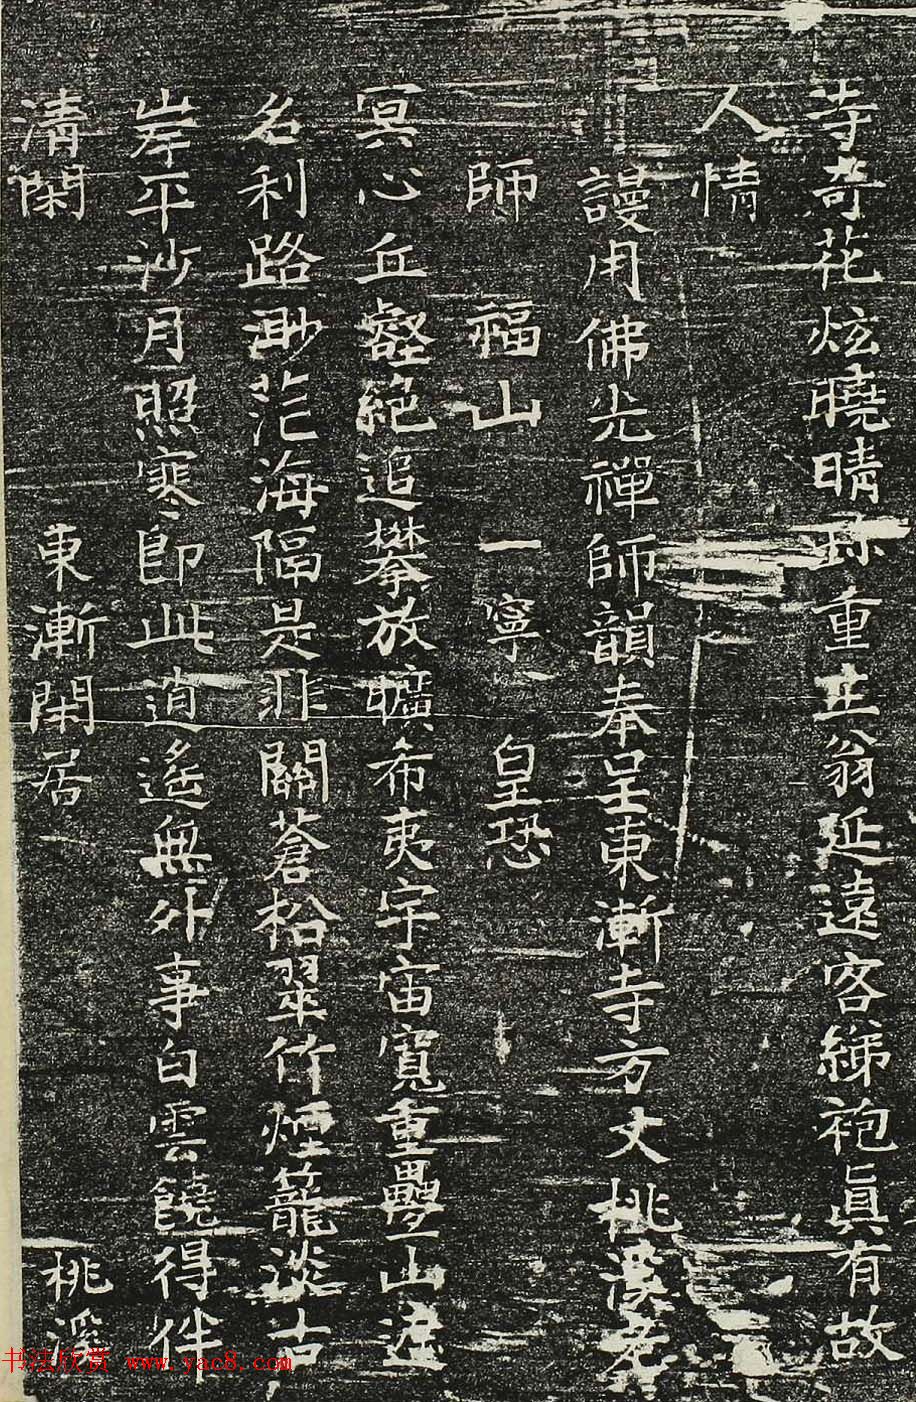 寺奇花炫曉晴珎重正翁延遠客綈袍眞有故
人情
謾用佛光禪師韻奉呈東漸寺方丈桃溪老
師 福山 一寧 皇恐
冥心丘壑絶追攀放曠希夷宇宙寬重疊山遮
名利路渺茫海隔是非關蒼松翠竹烟籠淡古
岸平沙月照寒即此逍遙無外事白雲饒得伴
清閑 東漸閑居 桃溪
书法欣赏 www.yac8.com